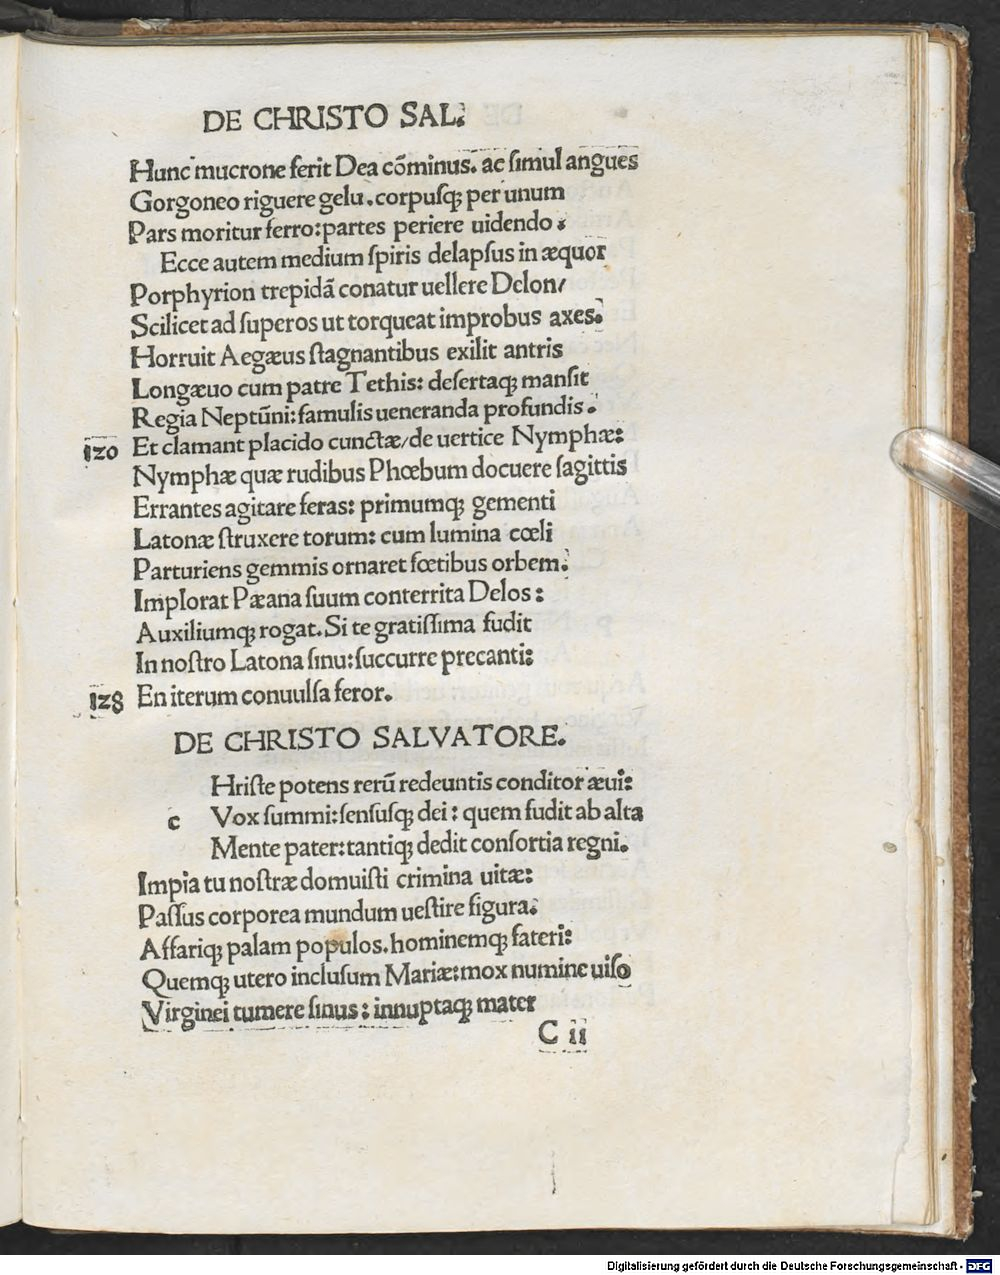 DE CHRISTO SAL.
Hunc mucrone ferit Dea cõminus. ac ſimul angues
Gorgoneo riguere gelu. corpuſq; per unum
Pars moritur ferro: partes periere uidendo.
Ecce autem medium ſpiris delapſus in æquor
Porphyrion trepidã conatur uellere Delon/
Scilicet ad ſuperos ut torqueat improbus axes.
Horruit Aegæus ſtagnantibus exilit antris
Longæuo cum patre Tethis: deſertaq; manſit
Regia Neptũni: famulis ueneranda profundis.
120 Et clamant placido cunctæ/de uertice Nymphæ:
Nymphæ quæ rudibus Phœbum docuere ſagittis
Errantes agitare feras: primumq; gementi
Latonæ ſtruxere torum: cum lumina cœli
Parturiens gemmis ornaret fœtibus orbem.
Implorat Pæana ſuum conterrita Delos:
Auxiliumq; rogat. Si te gratiſſima fudit
In noſtro Latona ſinu: ſuccurre precanti:
128 En iterum conuulſa feror.
DE CHRISTO SALVATORE.
Hriſte potens rerũ redeuntis conditor æui:
c Vox ſummi: ſenſuſq; dei: quem fudit ab alta
Mente pater: tantiq; dedit conſortia regni.
Impia tu noſtræ domuiſti crimina uitæ:
Paſſus corporea mundum ueſtire figura:
Affariq; palam populos. hominemq; fateri:
Quemq; utero incluſum Mariæ: mox numine uiſo
Virginei tumere ſinus: innuptaq; mater
C ii
Digitalisierung gefördert durch die Deutsche Forschungsgemeinschaft - DFG